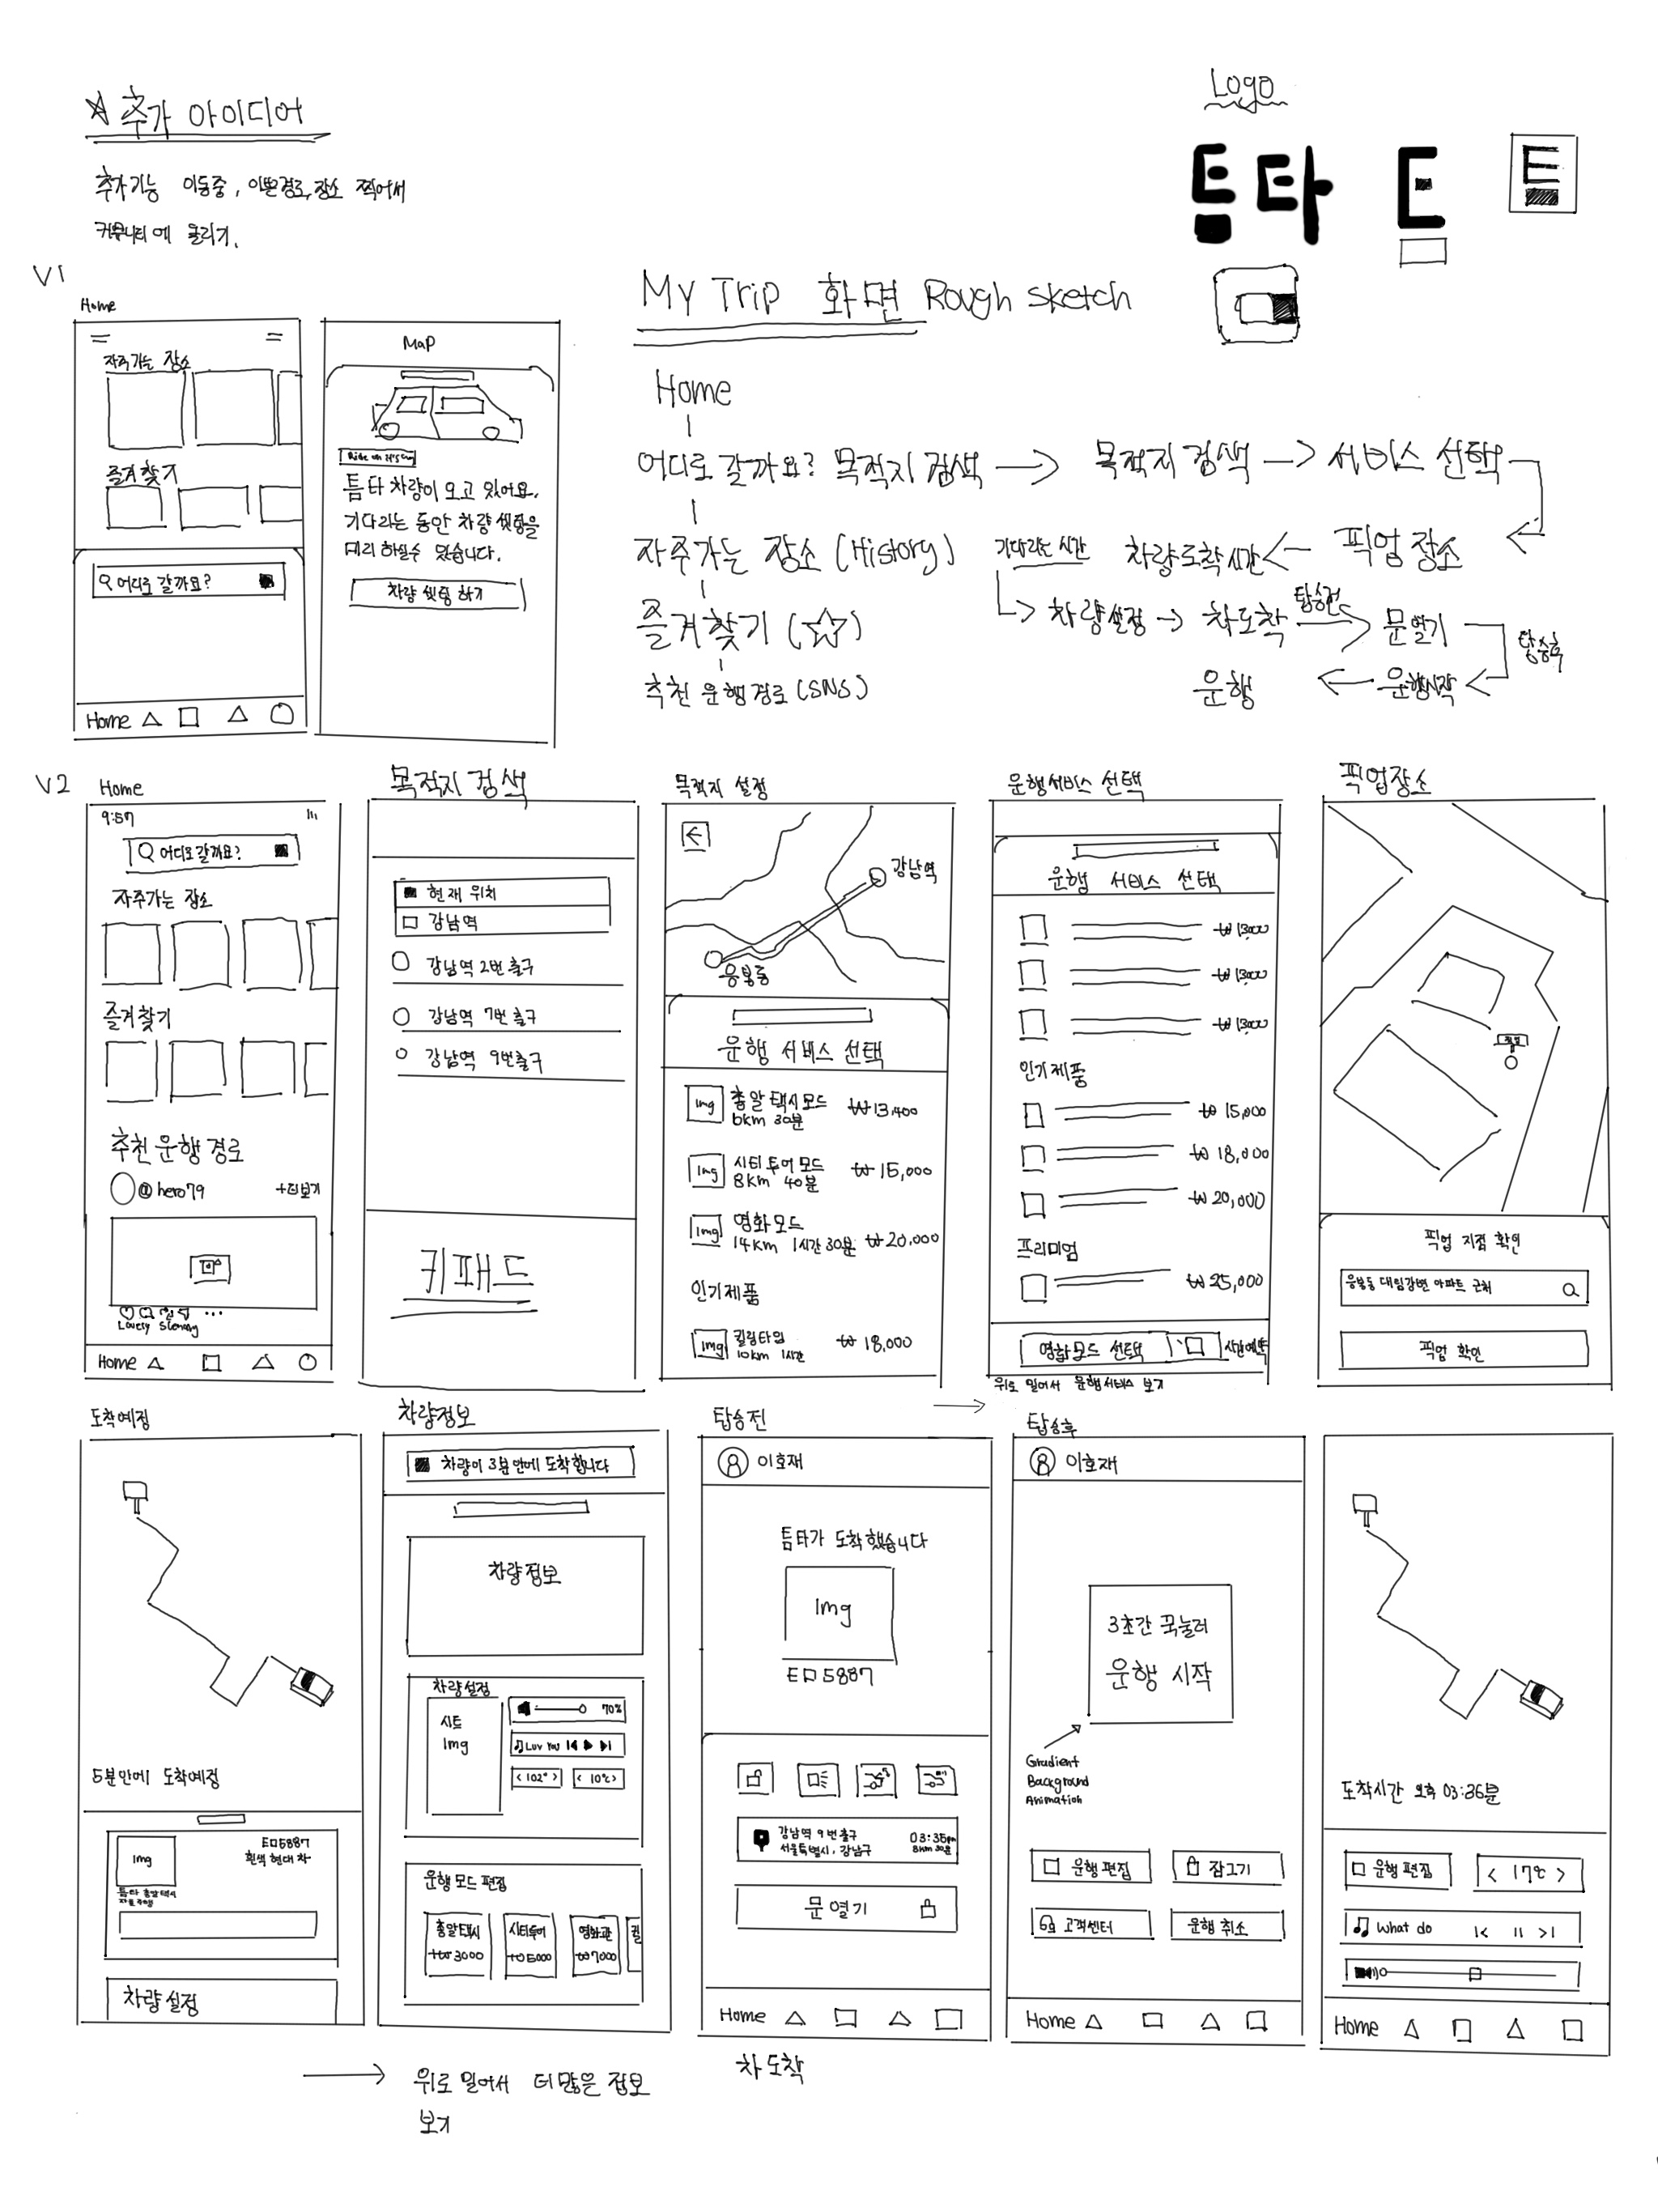 ☆ 추가 아이디어
추가기능 이동중, 이쁜경로, 장소 찍어서
커뮤니티에 올리기.
Logo
틈타 E E
V1
Home
자주가는 장소
즐겨찾기
어디로 갈까요?
Home
Map
틈타 차량이 오고 있어요.
기다리는 동안 차량 셋팅을
미리 하실수 있습니다.
차량 셋팅 하기
My Trip 화면 Rough sketch
Home
어디로 갈까요? 목적지 검색 → 목적지 검색 → 서비스 선택
자주가는 장소 (History)
즐겨찾기 (☆)
추천 운행경로 (SNS)
픽업 장소
차량도착시간
기다리는 시간
차량설정 → 차도착
탑승전
문열기
탑승후
운행시작
운행
V2
Home
9:57
어디로갈까요?
자주가는 장소
즐겨찾기
추천 운행 경로
@hero79
+더보기
Lovely
Home
목적지 검색
현재 위치
강남역
강남역 2번 출구
강남역 7번 출구
강남역 9번출구
키패드
목적지 설정
강남역
응봉동
운행 서비스 선택
Img 총알 택시모드 ₩13,400
6km 30분
Img 시티투어 모드 ₩15,000
8km 40분
Img 영화모드
14km 1시간 30분 ₩20,000
인기제품
Img 킬링타임 ₩18,000
10km 1시간
운행서비스 선택
운행 서비스 선택
₩13,000
₩13,000
₩13,000
인기제품
₩15,000
₩18,000
₩20,000
프리미엄
₩25,000
영화모드 선택
위로 밀어서 운행서비스 보기
픽업장소
픽업
픽업 지점 확인
응봉동 대림강변 아파트 근처
픽업 확인
도착예정
5분안에 도착예정
Img
E口5887
흰색 현대 차
틈타 총알택시
자율주행
차량 설정
차량정보
차량이 3분안에 도착합니다
차량정보
차량설정
시트
Img
70%
Luv You
< 102° >
< 10℃ >
운행 모드 편집
총알택시
+₩3000
시티투어
+₩5000
영화관
₩7000
위로 밀어서 더 많은 정보
보기
탑승전
이호재
틈타가 도착했습니다
Img
E口5887
강남역 9번출구
서울특별시, 강남구
03:35pm
8km 30분
문 열기
Home
차 도착
탑승후
이호재
3초간 꾹눌러
운행 시작
Gradient
Background
Animation
운행 편집
잠그기
고객센터
운행 취소
Home
도착시간 오후 03:36분
운행 편집
< 17℃ >
What do
Home